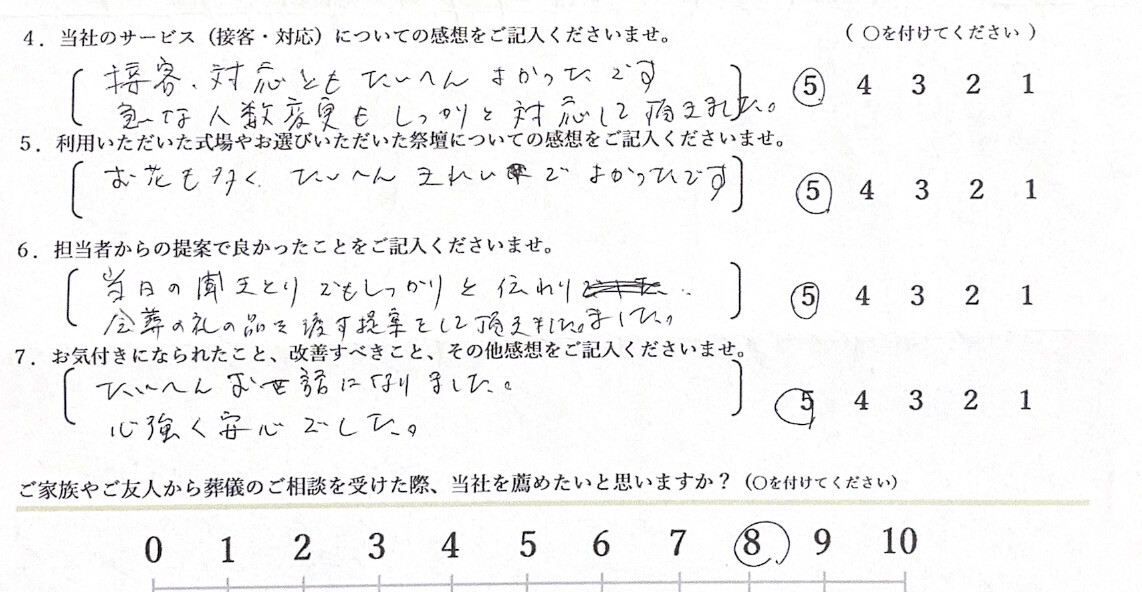 4．当社のサービス（接客・対応）についての感想をご記入くださいませ。
（ ○を付けてください ）
接客、対応ともたいへんよかったです
急な人数変更もしっかりと対応して頂きました。
5 4 3 2 1
5．利用いただいた式場やお選びいただいた祭壇についての感想をご記入くださいませ。
お花も多く、たいへんきれいでよかったです
5 4 3 2 1
6．担当者からの提案で良かったことをご記入くださいませ。
当日の聞きとりでもしっかりと伝わり
会葬の礼の品を渡す提案をして頂きました。ました。
5 4 3 2 1
7．お気付きになられたこと、改善すべきこと、その他感想をご記入くださいませ。
たいへんお世話になりました。
心強く安心でした。
5 4 3 2 1
ご家族やご友人から葬儀のご相談を受けた際、当社を薦めたいと思いますか？（○を付けてください）
0 1 2 3 4 5 6 7 8 9 10